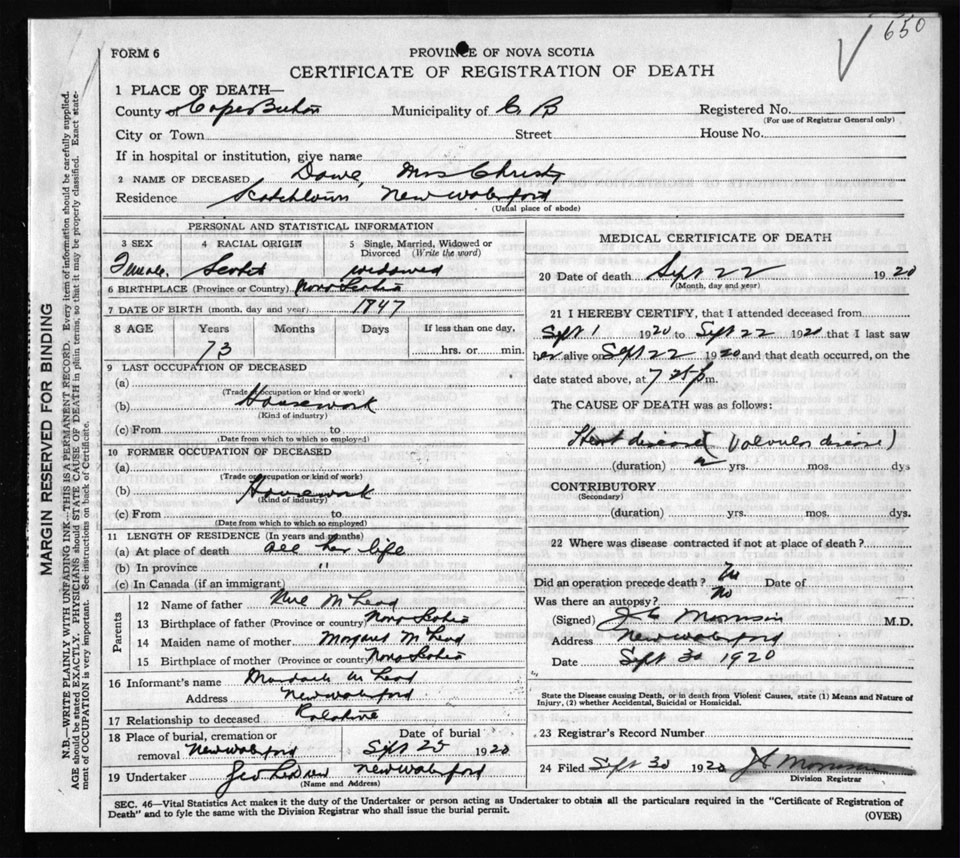 650
FORM 6
PROVINCE OF NOVA SCOTIA
CERTIFICATE OF REGISTRATION OF DEATH
1 PLACE OF DEATH—
County of Cape Breton Municipality of C B Registered No.
(For use of Registrar General only)
City or Town Street House No.
If in hospital or institution, give name
2 NAME OF DECEASED Dowe, Mrs Christy
Residence Scotchtown New Waterford
(Usual place of abode)
PERSONAL AND STATISTICAL INFORMATION
3 SEX 4 RACIAL ORIGIN 5 Single, Married, Widowed or Divorced (Write the word)
Female. Scotch widowed
6 BIRTHPLACE (Province or Country) Nova Scotia
7 DATE OF BIRTH (month, day and year) 1847
8 AGE Years Months Days If less than one day,
73 hrs. or min.
9 LAST OCCUPATION OF DECEASED
(a)
(Trade or occupation or kind or work)
(b) Housework
(Kind of industry)
(c) From to
(Date from which to which so employed)
10 FORMER OCCUPATION OF DECEASED
(a)
(Trade or occupation or kind or work)
(b) Housework
(Kind of industry)
(c) From to
(Date from which to which so employed)
11 LENGTH OF RESIDENCE (In years and months)
(a) At place of death all her life
(b) In province "
(c) In Canada (if an immigrant)
Parents
12 Name of father McLeod
13 Birthplace of father (Province or country) Nova Scotia
14 Maiden name of mother Margaret McLeod
15 Birthplace of mother (Province or country) Nova Scotia
16 Informant's name Murdoch McLeod
Address New Waterford
17 Relationship to deceased Relative
18 Place of burial, cremation or removal New Waterford Date of burial Sept 25 1920
19 Undertaker Geo New Waterford
(Name and Address)
MEDICAL CERTIFICATE OF DEATH
20 Date of death Sept 22 1920
(Month, day and year)
21 I HEREBY CERTIFY, that I attended deceased from
Sept 1 1920 to Sept 22 1920 that I last saw
her alive on Sept 22 1920 and that death occurred, on the
date stated above, at 7 p m.
The CAUSE OF DEATH was as follows:
Heart disease (Valvular disease)
(duration) 2 yrs. mos. dys
CONTRIBUTORY
(Secondary)
(duration) yrs. mos. dys.
22 Where was disease contracted if not at place of death?
Did an operation precede death? no Date of
Was there an autopsy? no
(Signed) Morrison M.D.
Address New Waterford
Date Sept 30 1920
State the Disease causing Death, or in death from Violent Causes, state (1) Means and Nature of
Injury, (2) whether Accidental, Suicidal or Homicidal.
23 Registrar's Record Number
24 Filed Sept 30 1920 Morrison
Division Registrar
SEC. 46—Vital Statistics Act makes it the duty of the Undertaker or person acting as Undertaker to obtain all the particulars required in the "Certificate of Registration of
Death" and to fyle the same with the Division Registrar who shall issue the burial permit.
(OVER)
MARGIN RESERVED FOR BINDING
N.B.—WRITE PLAINLY WITH UNFADING INK—THIS IS A PERMANENT RECORD. Every item of information should be carefully supplied.
AGE should be stated EXACTLY. PHYSICIANS should STATE CAUSE OF DEATH in plain terms, so that it may be properly classified. Exact state-
ment of OCCUPATION is very important. See instructions on back of Certificate.